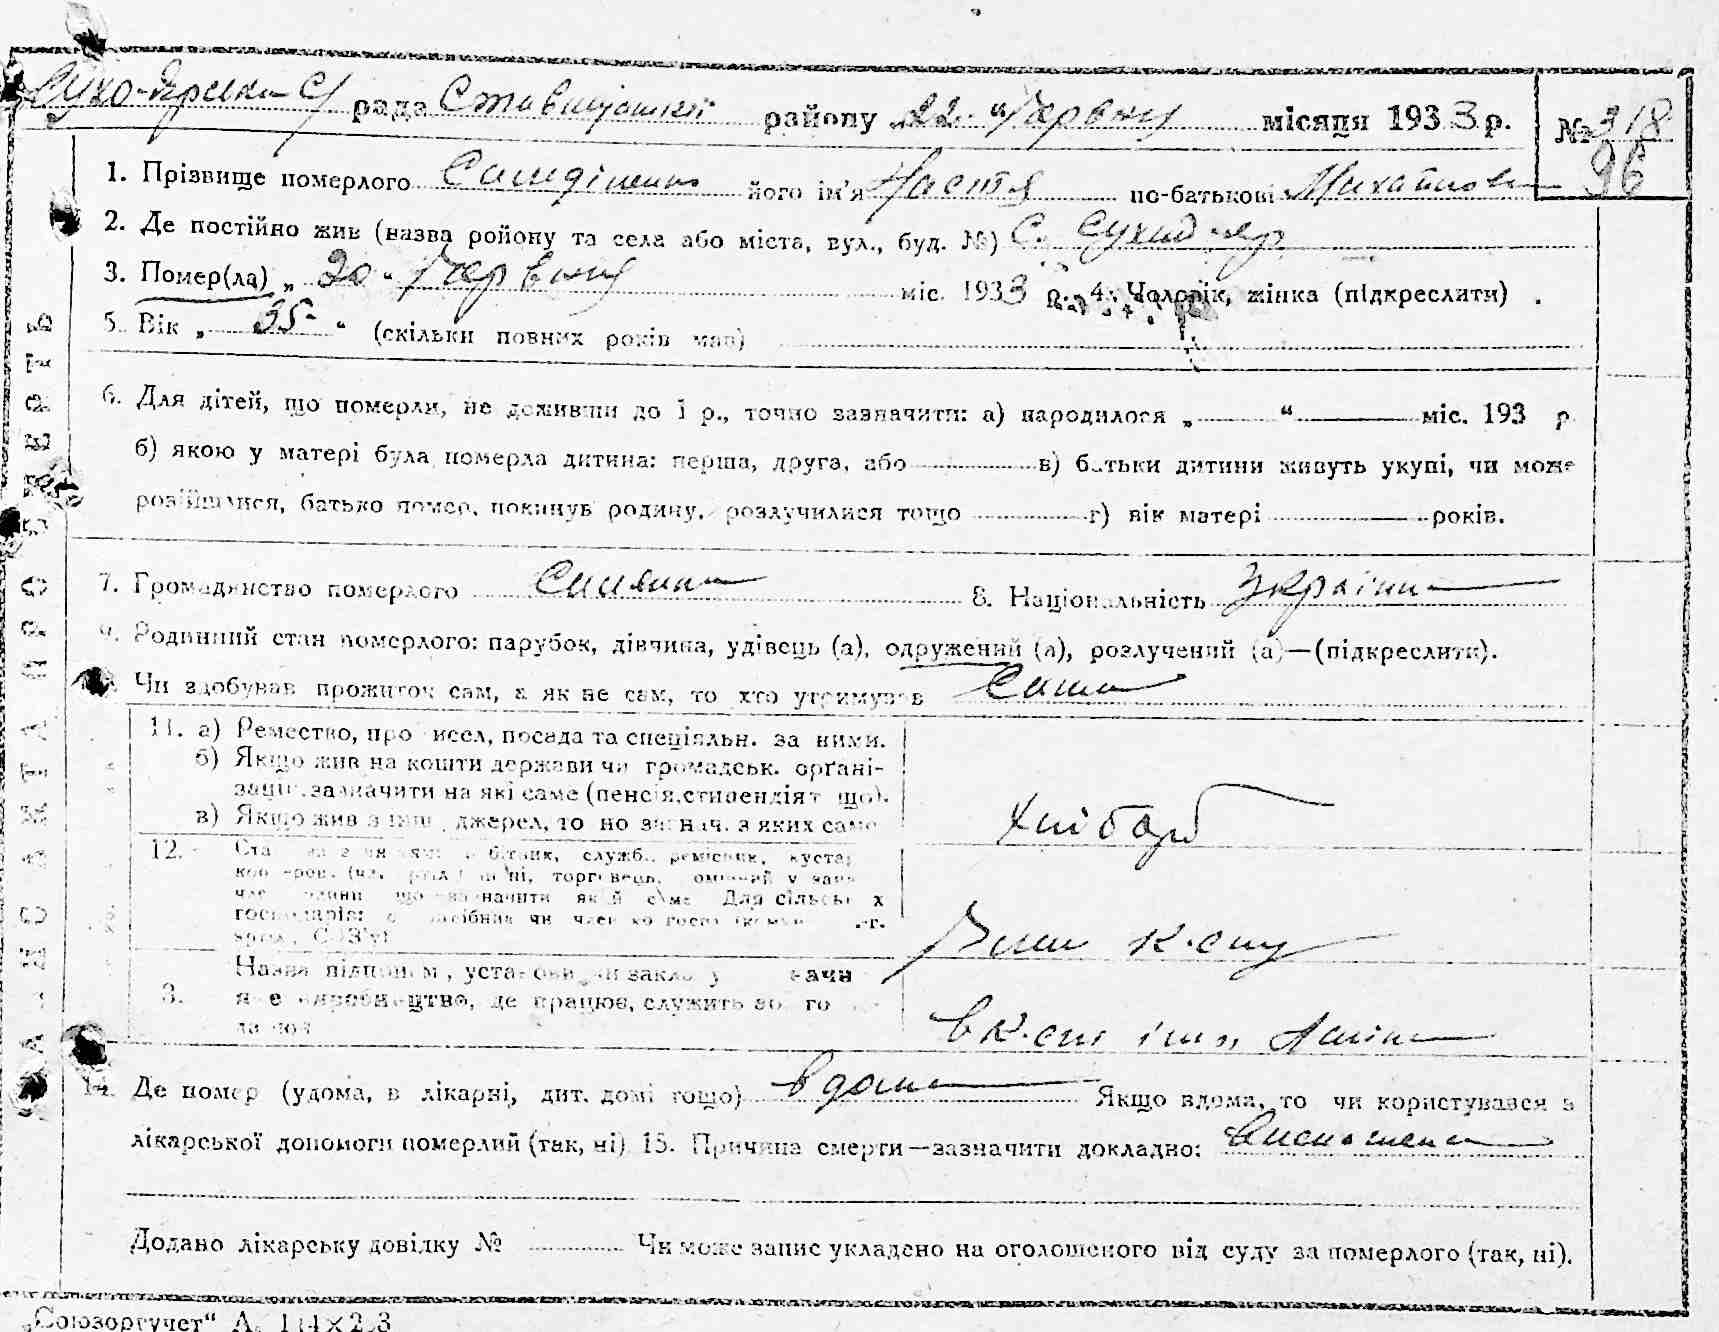 Сухо-Ярська С/рада Ставищанськ району 22 "Червня місяця 1933 р. № 318
96
1. Прізвище померлого його ім'я Настя по-батькові Михайлов
2. Де постійно жив (назва ройону та села або міста, вул., буд. №) С. Сухий-яр
3. Помер(ла) „ 20 - Червня міс. 1933 р. 4. Чоловік, жінка (підкреслити) .
5. Вік „ 35 " (скільки повних років мав)
6. Для дітей, що померли, не доживши до 1 р., точно зазначити: а) народилося „ “ міс. 193 р
б) якою у матері була померла дитина: перша, друга, або в) батьки дитини живуть укупі, чи може
розійшлися, батько помер, покинув родину, розлучилися тощо г) вік матері років.
7. Громадянство померлого Селянка 8. Національність Україн
9. Родинний стан померлого: парубок, дівчина, удівець (а), одружений (а), розлучений (а)—(підкреслити).
Чи здобував прожиток сам, а як не сам, то хто утримував Сама
11. а) Ремество, про исел, посада та спеціяльн. за ними.
б) Якщо жив на кошти держави чи громадськ. орґані-
зацій, зазначити на які саме (пенсія, стипендія т що).
в) Якщо жив з інш джерел, то но зазнач. з яких саме
Хлібороб
12.
служб., ремісник, кустар
торговець,
зазначити який саме Для сільськ х
господарів:
Член к-спу
Назва підприєм , установи, чи закладу
3. виробництво, де працює, служить або го
в к-спі ім.
14. Де помер (удома, в лікарні, дит. домі тощо) в дома Якщо вдома, то чи користувався з
лікарської допомоги померлий (так, ні) 15. Причина смерти—зазначити докладно: Виснаження
Додано лікарську довідку № Чи може запис укладено на оголошеного від суду за померлого (так, ні).
„Союзоргучет“